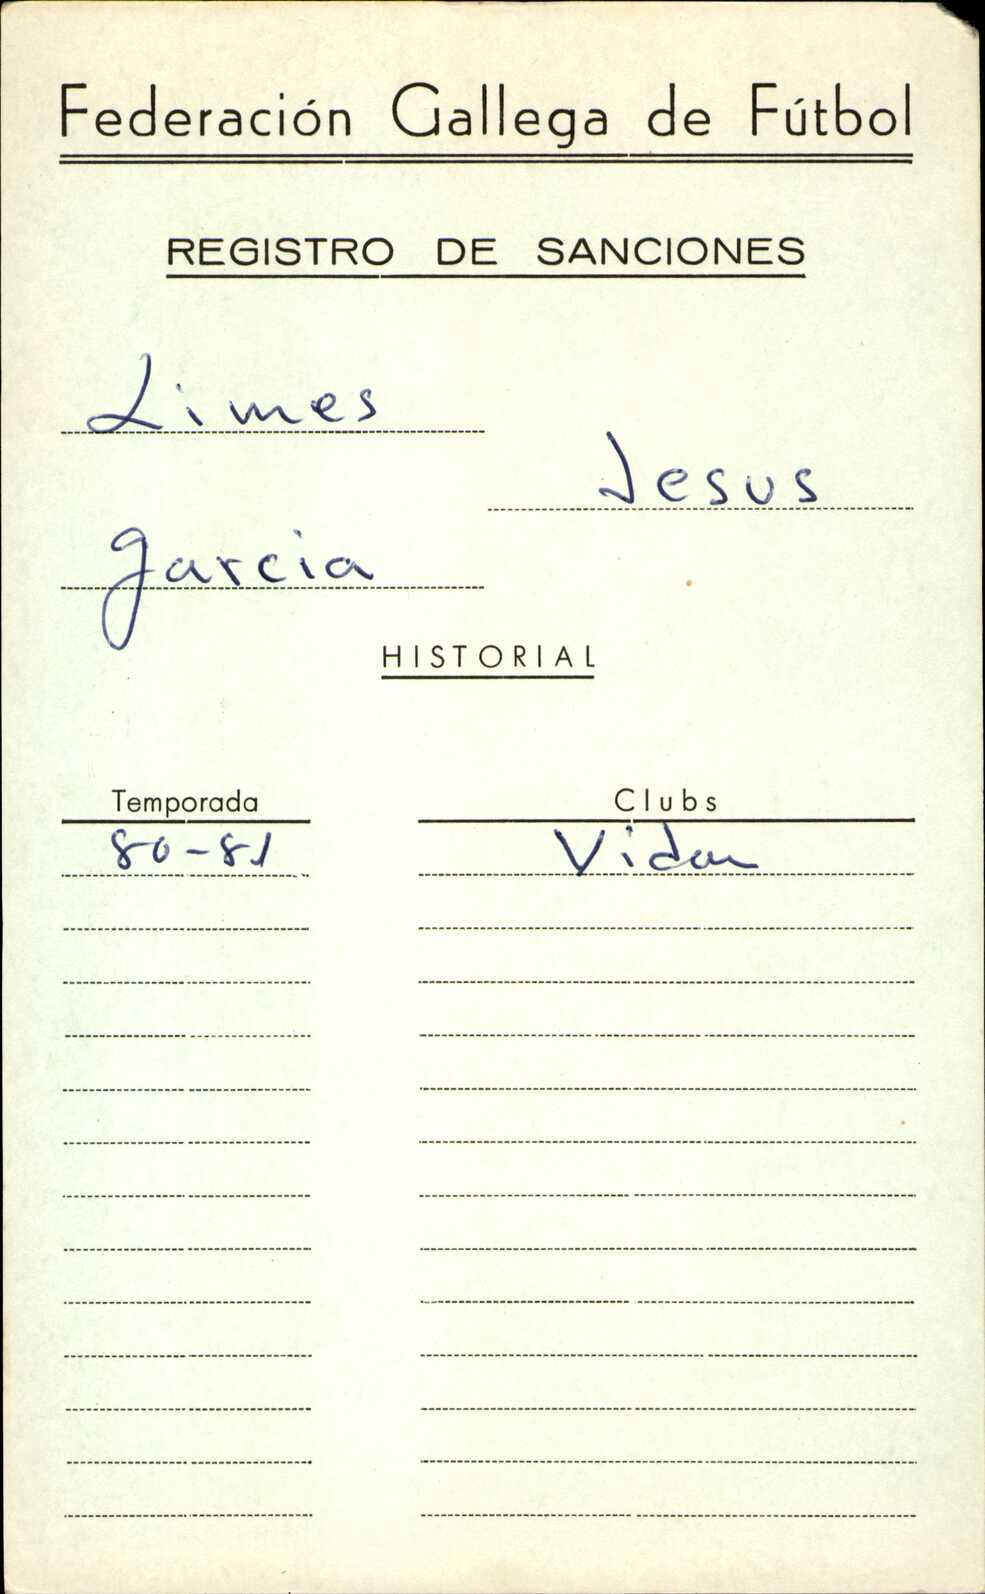 Federación Gallega de Fútbol
REGISTRO DE SANCIONES
Limes
Jesus
Garcia
HISTORIAL
Temporada Clubs
80-81 Vidan